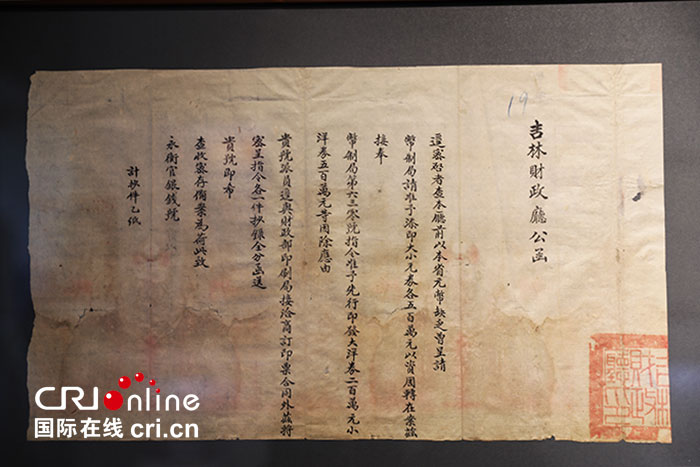 19
吉林財政廳公函
逕密啓者查本廳前以本省元幣缺乏曾呈請
幣制局請准予添印大小元券各五百萬元以資周轉在案茲
接奉
幣制局第六三零號指令准予先行印發大洋券二百萬元小
洋券五百萬元等因除應由
貴號派員逕與財政部印刷局接洽商訂印票合同外茲將
密呈指令各一件抄錄全分函送
貴號即希
查收密存備案為荷此致
永衡官銀錢號
計抄件乙紙
CRI online
国际在线 cri.cn